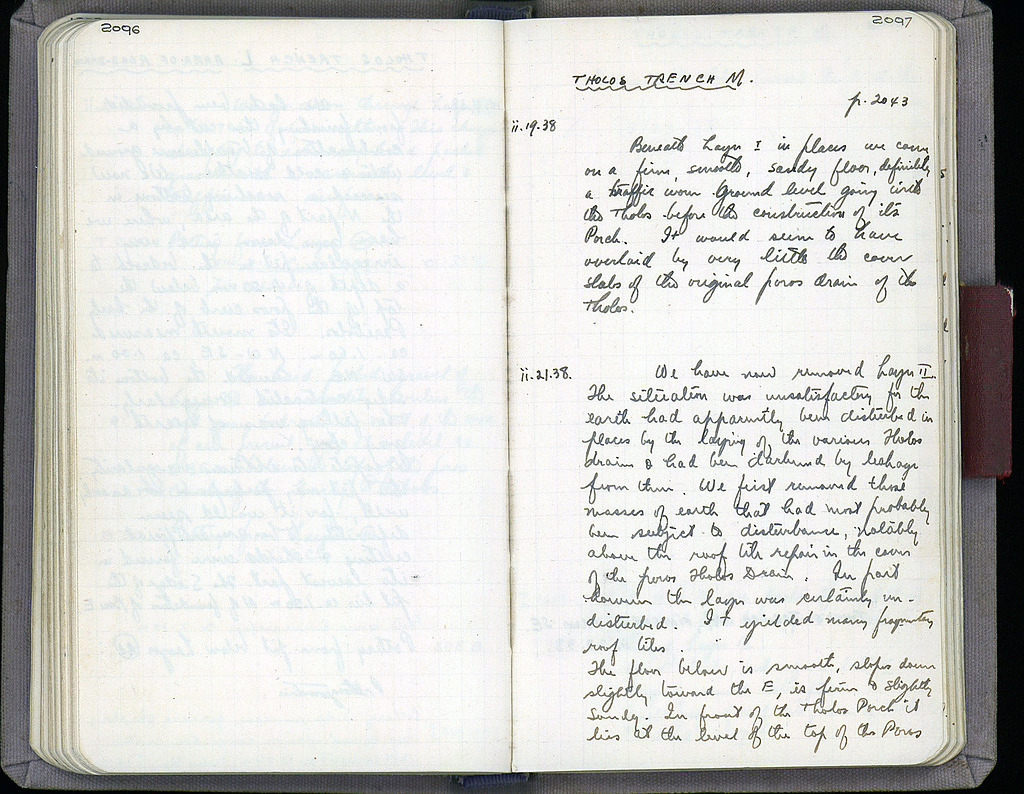 2096
2097
THOLOS TRENCH M.
p. 2043
ii.19.38
Beneath Layer I in places we came
on a firm, smooth, sandy floor, definitely
a traffic worn ground level going with
the Tholos before the construction of its
Porch. It would seem to have
overlaid by very little the cover
slabs of the original poros drain of the
Tholos.
ii.21.38.
We have now removed Layer II.
The situation was unsatisfactory for the
earth had apparently been disturbed in
places by the laying of the various Tholos
drains & had been darkened by leakage
from them. We first removed those
masses of earth that had most probably
been subject to disturbance, notably
above the roof tile repair in the cover
of the poros Tholos Drain. In part
however the layer was certainly un-
disturbed. It yielded many fragmentary
roof tiles.
The floor below is smooth, slopes down
slightly toward the E, is firm & slightly
sandy. In front of the Tholos Porch it
lies at the level of the top of the Poros